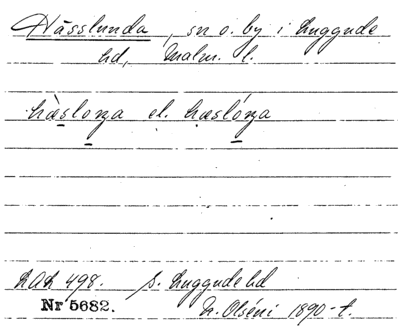 Hässlunda, sn o. by i Luggude
hd, Malm. l.
hæ̀sloṉa el. hæslóṉa
LAL 498. s. Luggude hd
Nr 5682. N. Olséni 1890-t.